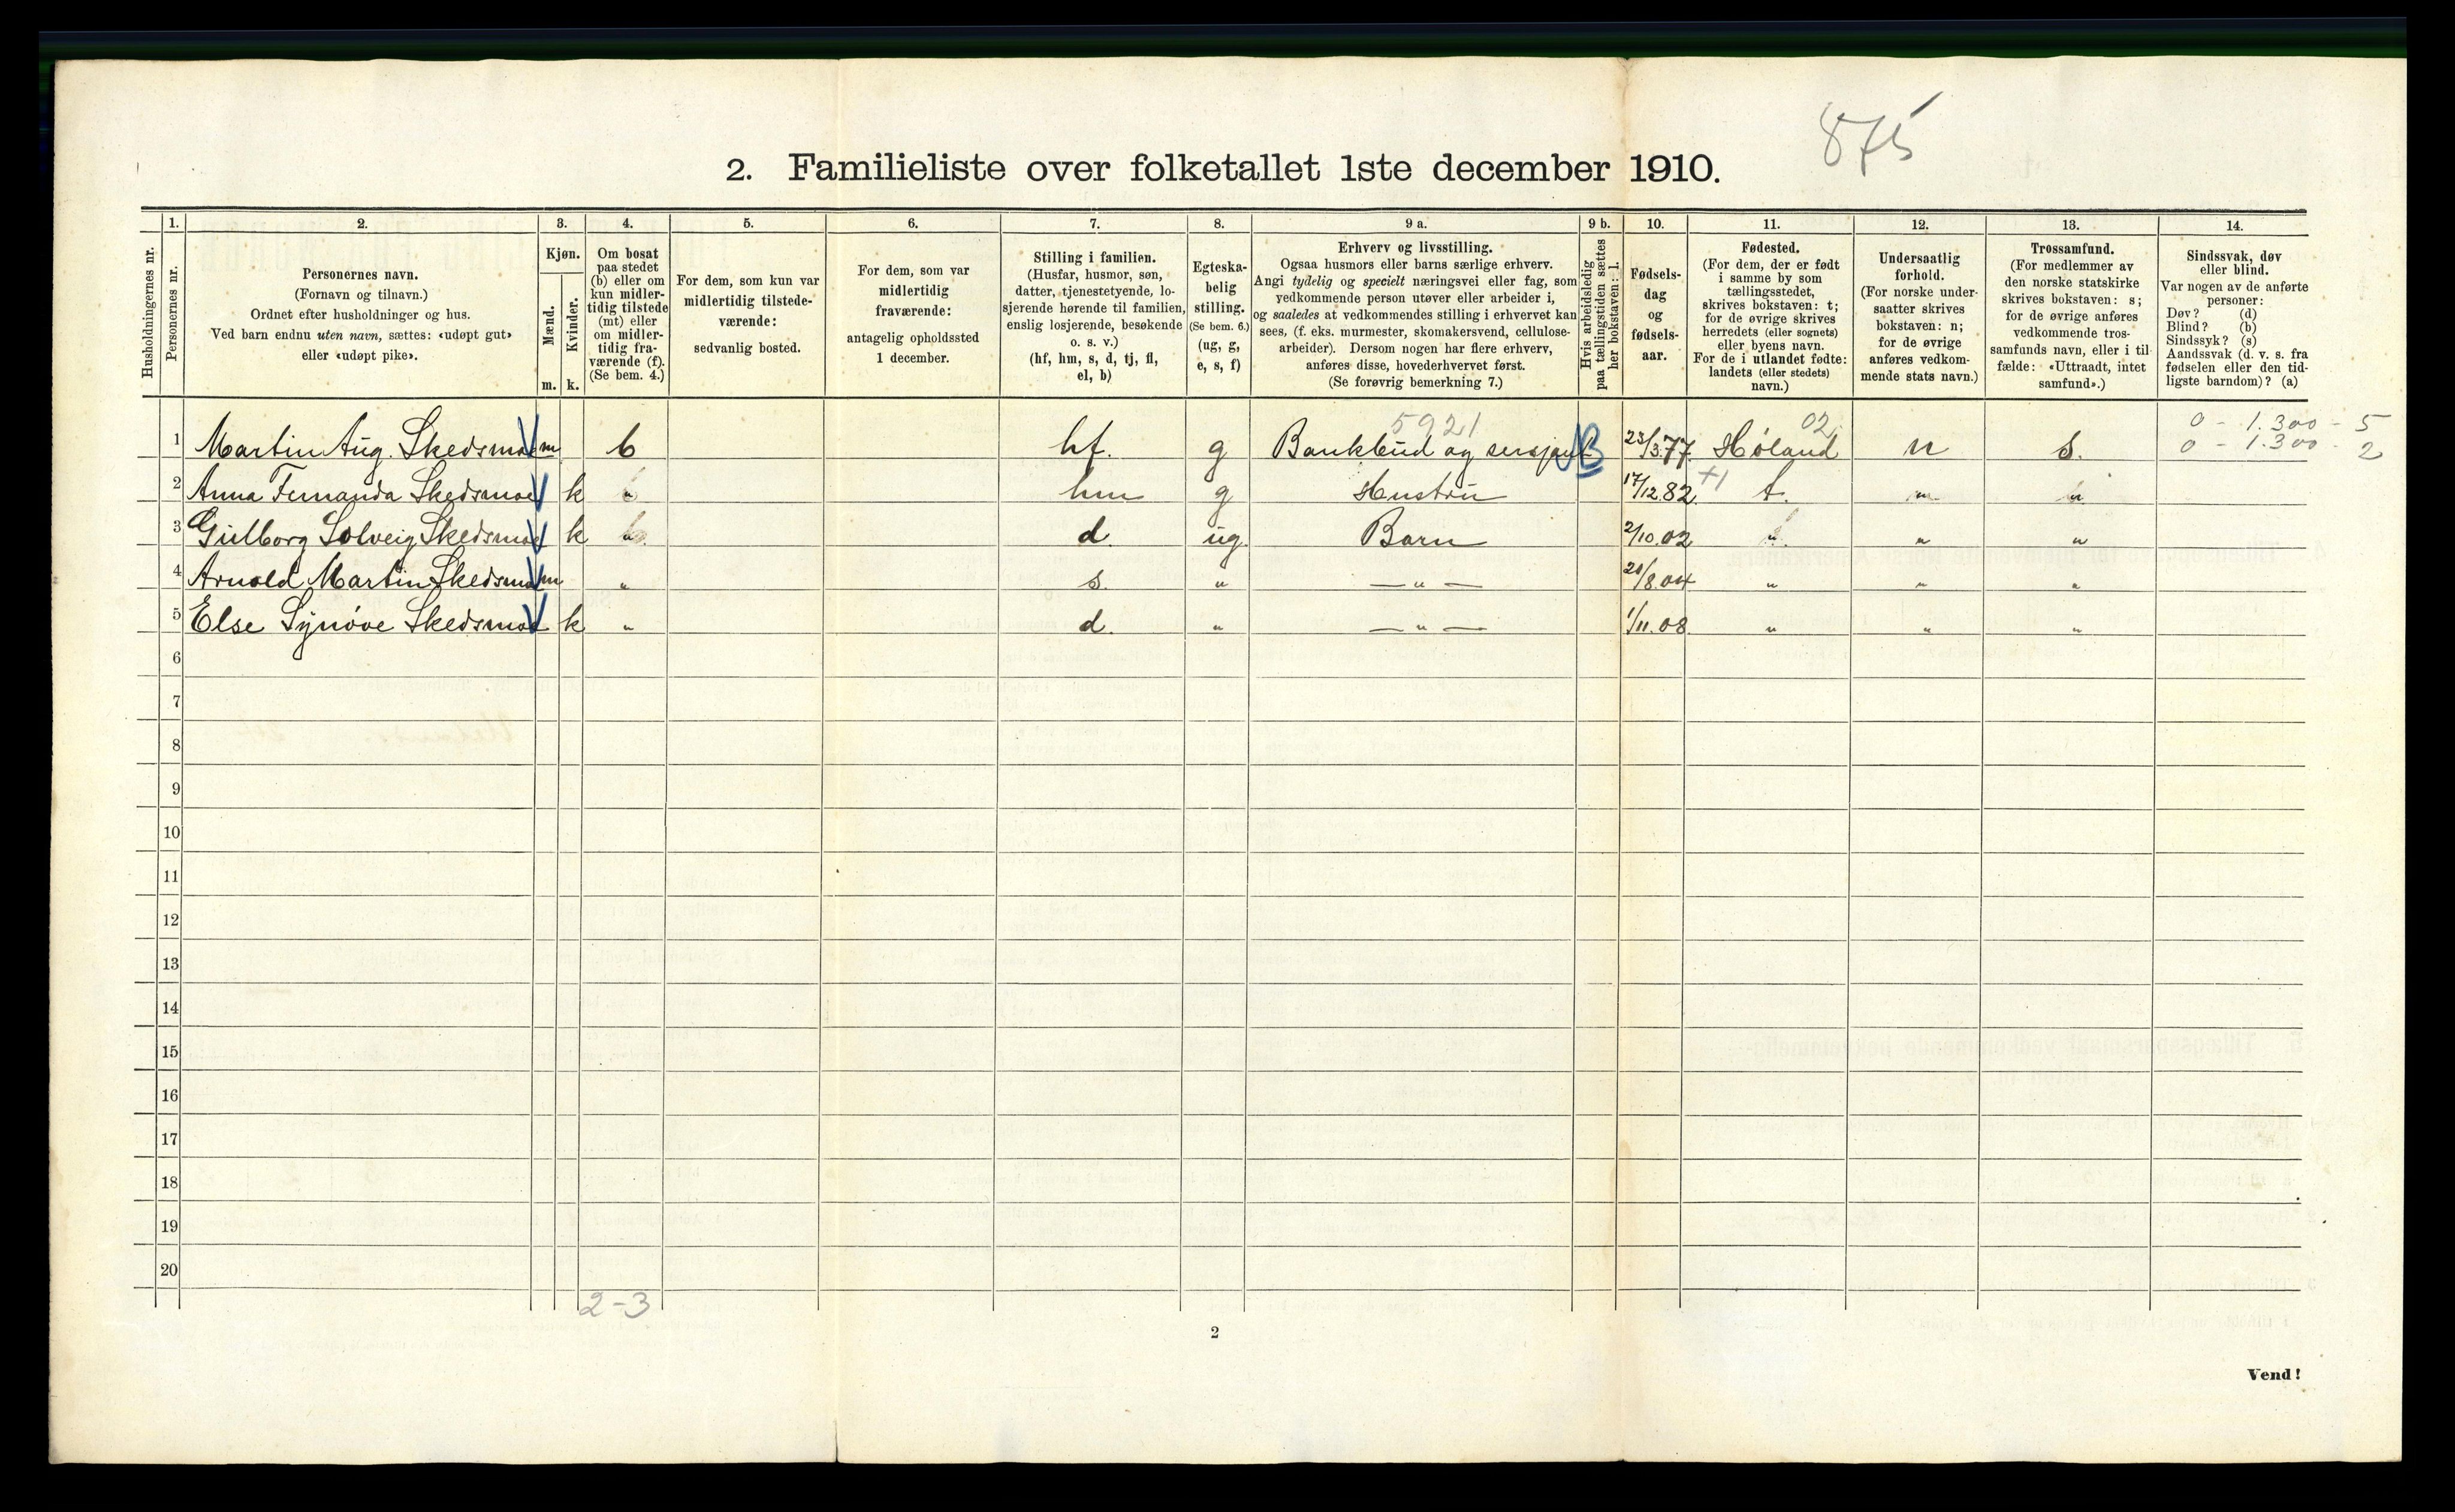 875
2. Familieliste over folketallet 1ste december 1910.
Husholdningernes nr.
1. Personernes nr.
2. Personernes navn.
(Fornavn og tilnavn.)
Ordnet efter husholdninger og hus.
Ved barn endnu uten navn, sættes: «udøpt gut»
eller «udøpt pike».
3. Kjøn.
Mænd. m.
Kvinder. k.
4. Om bosat
paa stedet
(b) eller om
kun midler-
tidig tilstede
(mt) eller
om midler-
tidig fra-
værende (f).
(Se bem. 4.)
5. For dem, som kun var
midlertidig tilstede-
værende:
sedvanlig bosted.
6. For dem, som var
midlertidig
fraværende:
antagelig opholdssted
1 december.
7. Stilling i familien.
(Husfar, husmor, søn,
datter, tjenestetyende, lo-
sjerende hørende til familien,
enslig losjerende, besøkende
o. s. v.)
(hf, hm, s, d, tj, fl,
el, b)
8. Egteska-
belig
stilling.
(Se bem. 6.)
(ug, g,
e, s, f)
9 a. Erhverv og livsstilling.
Ogsaa husmors eller barns særlige erhverv.
Angi tydelig og specielt næringsvei eller fag, som
vedkommende person utøver eller arbeider i,
og saaledes at vedkommendes stilling i erhvervet kan
sees, (f. eks. murmester, skomakersvend, cellulose-
arbeider). Dersom nogen har flere erhverv,
anføres disse, hovederhvervet først.
(Se forøvrig bemerkning 7.)
9 b. Hvis arbeidsledig
paa tællingstiden sættes
her bokstaven: l.
10. Fødsels-
dag
og
fødsels-
aar.
11. Fødested.
(For dem, der er født
i samme by som
tællingsstedet,
skrives bokstaven: t;
for de øvrige skrives
herredets (eller sognets)
eller byens navn.
For de i utlandet fødte:
landets (eller stedets)
navn.)
12. Undersaatlig
forhold.
(For norske under-
saatter skrives
bokstaven: n;
for de øvrige
anføres vedkom-
mende stats navn.)
13. Trossamfund.
(For medlemmer av
den norske statskirke
skrives bokstaven: s;
for de øvrige anføres
vedkommende tros-
samfunds navn, eller i til-
fælde: «Uttraadt, intet
samfund».)
14. Sindssvak, døv
eller blind.
Var nogen av de anførte
personer:
Døv? (d)
Blind? (b)
Sindssyk? (s)
Aandssvak (d. v. s. fra
fødselen eller den tid-
ligste barndom)? (a)
5921 02 0 - 1.300 - 5
1 Martin Aug. Skedsmoe m b hf. g Bankbud og sersjant B 23/3.77 Høland n s. 0 - 1.300 - 2
2 Anna Fernanda Skedsmoe k " hm g Hustru 17/12.82 t. " "
3 Gulborg Solveig Skedsmoe k " d. ug. Barn 2/10.02 " " "
4 Arnold Martin Skedsmoe m " s. " — " — 21/8.04 " " "
5 Else Synøve Skedsmoe k " d. " — " — 1/11.08 " " "
6
7
8
9
10
11
12
13
14
15
16
17
18
19
20
2-3
2
Vend!